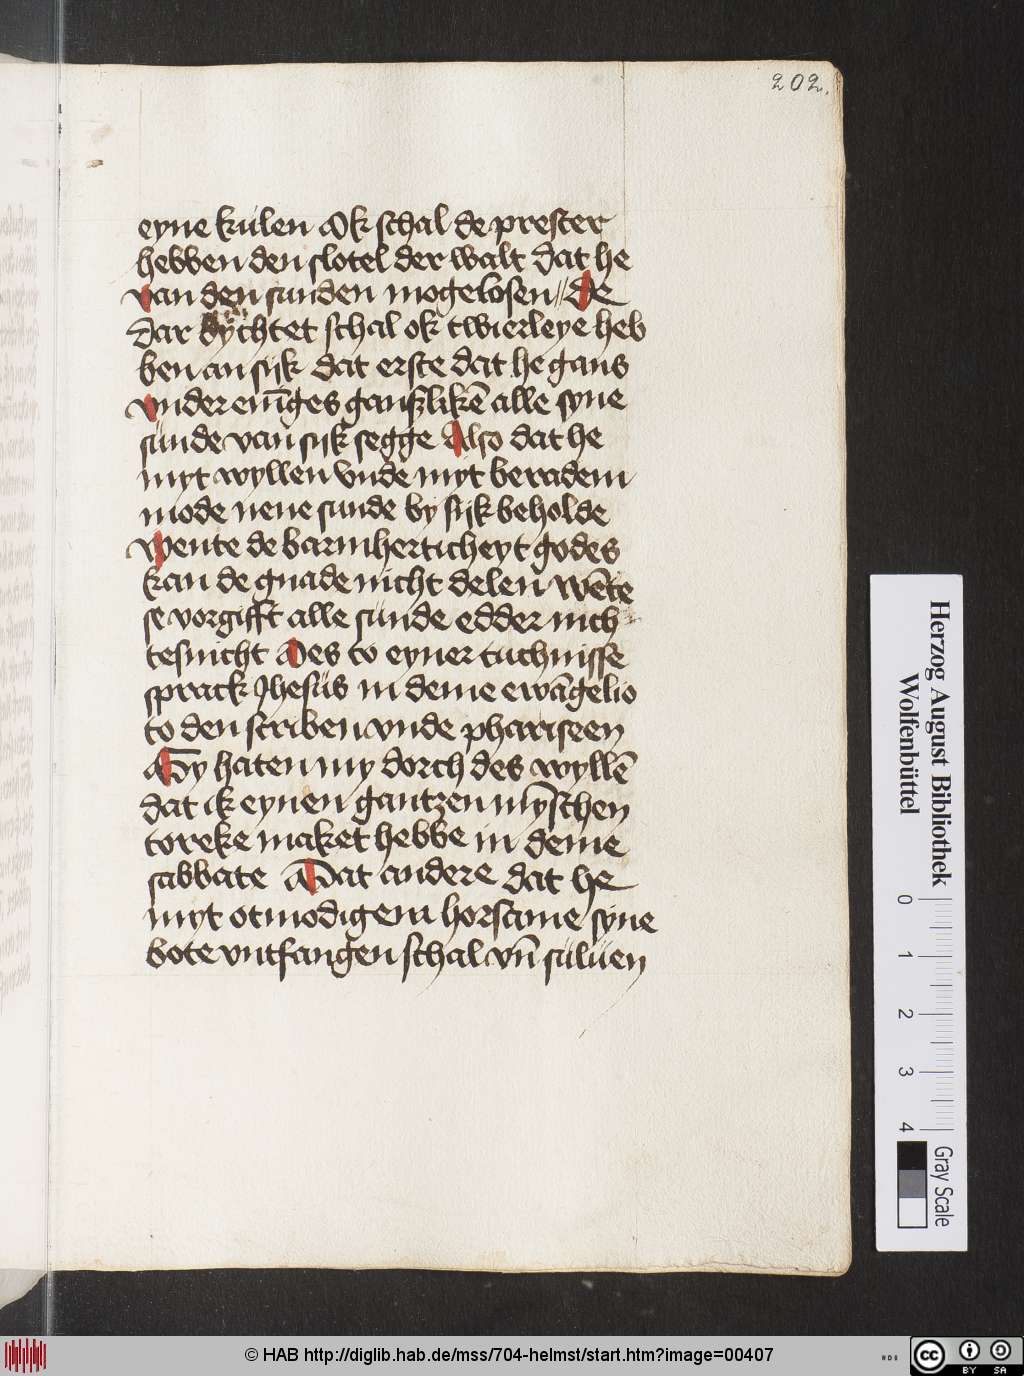 202.
eyne kulen Ok schal de prester
hebben den slotel der walt dat he
van den sunden mogelosen // de
dar bychtet schal ok twierleye heb
ben an sijk dat erste dat he gans
vnder eniges ganszlikē alle syne
sunde van sijk segge Also dat he
myt wyllen vnde myt beradem
mode nene sunde by sijk beholde
Wente de barmherticheyt godes
kan de gnade nicht delen wēte
se vorgifft alle sunde edder nich
tesnicht Des to eyner tuchnisse
sprack Jhesus in deme ewāgelio
to den scriben vnde phariseen
Gy haten my dorch des wyllē
dat ik eynen gantzen mȳschen
toreke maket hebbe in deme
sabbate Dat andere dat he
myt otmodigem horsame syne
bote vntfangen schal vn̄ suluen
Herzog August Bibliothek
Wolfenbüttel
0 1 2 3 4
Gray Scale
© HAB http://diglib.hab.de/mss/704-helmst/start.htm?image=00407
cc BY SA